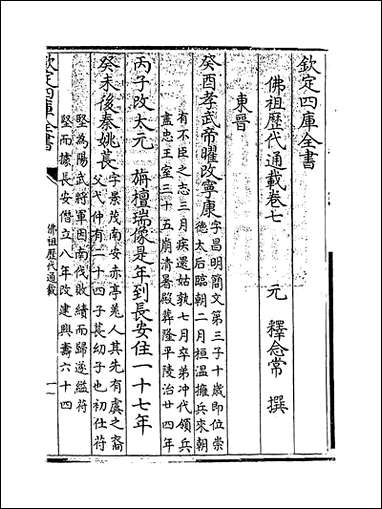 欽定四庫全書
佛祖歷代通載卷七
元 釋念常 撰
東晉
癸酉孝武帝曜改寧康
字昌明簡文第三子十歲即位崇
德太后臨朝二月桓溫擁兵來朝
有不臣之志三月疾還姑孰七月卒弟冲代領兵
盡忠王室三十五崩清暑殿葬隆平陵治廿四年
丙子改太元 旃檀瑞像是年到長安住一十七年
癸未後秦姚萇
字景茂南安赤亭羌人其先有虞之裔
父弋仲有二十四子萇幼子也初仕苻
堅為陽武將軍因南伐敗績而歸遂縊苻
堅而據長安僭立八年改建興壽六十四
欽定四庫全書
佛祖歷代通載
一